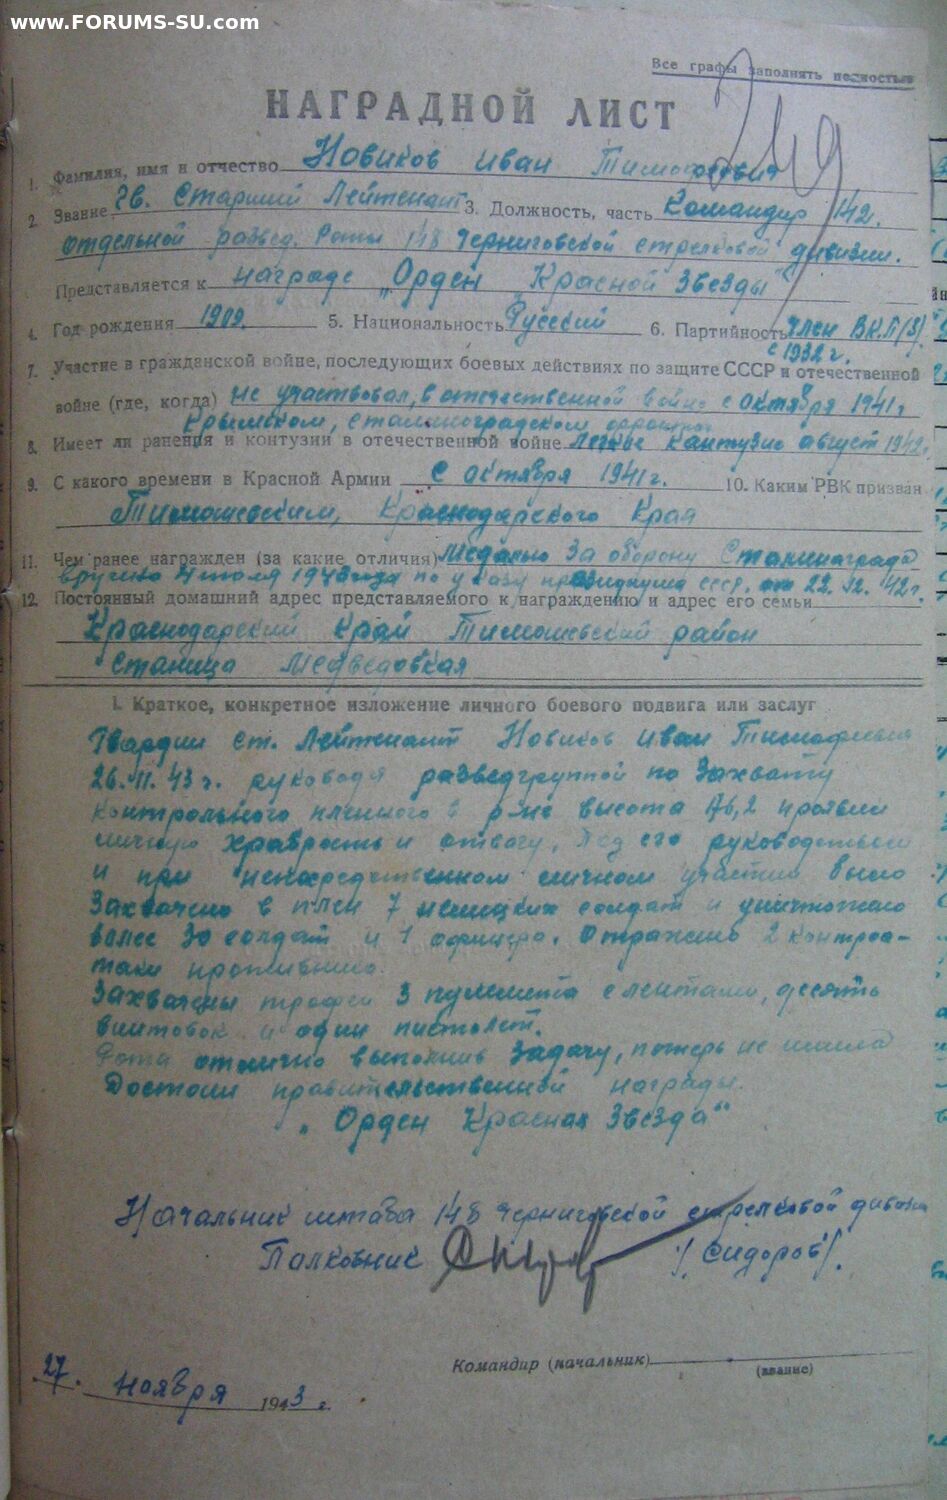 www.FORUMS-SU.com
Все графы заполнять полностью
НАГРАДНОЙ ЛИСТ
1. Фамилия, имя и отчество Новиков Иван Тимофеевич
2. Звание Гв. Старший Лейтенант 3. Должность, часть Командир 142.
отдельной развед. Роты 148 Черниговской стрелковой дивизии.
Представляется к награде „Орден Красной Звезды"
4. Год рождения 1909. 5. Национальность Русский 6. Партийность член ВКП(б)
с 1932 г.
7. Участие в гражданской войне, последующих боевых действиях по защите СССР и отечественной
войне (где, когда) не участвовал, в отечественной войне с октября 1941 г
Крымском, сталинградском фронтах
8. Имеет ли ранения и контузии в отечественной войне легкое кантузио август 1942.
9. С какого времени в Красной Армии с октября 1941 г. 10. Каким РВК призван
Тимошевским, Краснодарского Края
11. Чем ранее награжден (за какие отличия) медалью за оборону Сталинграда
вручено 4 июля 1943 года по указу президиума СССР. от 22.12.42 г.
12. Постоянный домашний адрес представляемого к награждению и адрес его семьи
Краснодарский Край Тимошевский район
станица Медведовкая
I. Краткое, конкретное изложение личного боевого подвига или заслуг
Гвардии ст. Лейтенант Новиков Иван Тимофеевич
26.11.43 г. руководя разведгруппой по захвату
контрольного пленного в р-не высота 176,2 проявил
личную храбрость и отвагу. Под его руководством
и при непосредственном личном участии было
Захвачено в плен 7 немецких солдат и уничтожено
более 30 солдат и 1 офицера. Отражено 2 контроа-
таки противника.
Захвачены трофеи 3 пулемета с лентами, десять
винтовок и один пистолет.
Рота отлично выполнив задачу, потерь не имела
Достоин правительственной награды.
„Орден Красная Звезда"
Начальник штаба 148 Черниговской стрелковой дивизии
Палковник /Сидоров/.
Командир (начальник)
(звание)
27. ноября 1943 г.